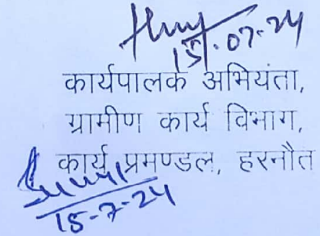 15.07.24
कार्यपालक अभियंता,
ग्रामीण कार्य विभाग,
कार्य प्रमण्डल, हरनौत
15-7-24